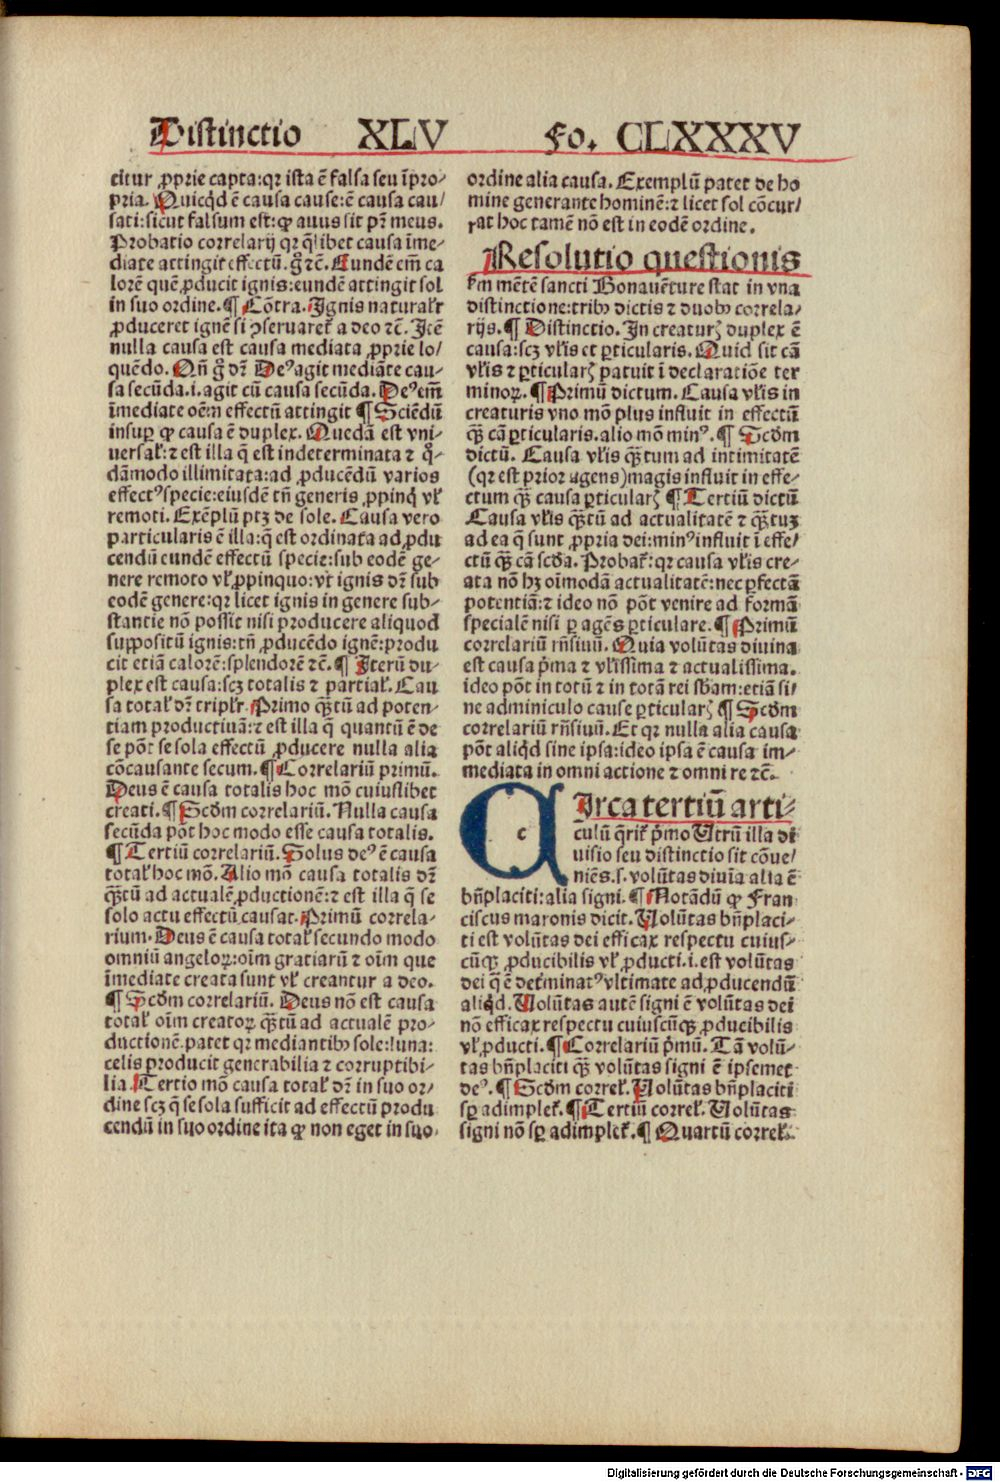 Distinctio XLV Fo. CLXXXV
citur ꝓprie capta:qꝛ ista ē falsa seu īpro⸗
pria. Quicqͥd ē causa cause:ē causa cau/
sati:sicut falsum est:ꝙ auus sit pr̄ meus.
Probatio correlarij qꝛ qͥlibet causa īme⸗
diate attingit effectū. gͦ ⁊c̄. Eundē em̄ ca
lorē quē ꝓducit ignis:eundē attingit sol
in suo ordine. ¶ Cōtra. Ignis naturalr̄
ꝓduceret ignē si ↄseruaret᷑ a deo ⁊c̄. Itē
nulla causa est causa mediata ꝓprie lo/
quēdo. Qn̄ gͦ dr̄ Deꝰ agit mediāte cau⸗
sa secūda.i.agit cū causa secūda. Deꝰ em̄
īmediate oēm effectū attingit ¶ Sciēdū
insuꝑ ꝙ causa ē duplex. Quedā est vni⸗
uersał:⁊ est illa q̄ est indeterminata ⁊ qͦ⸗
dāmodo illimitata:ad ꝓducēdū varios
effectꝰ specie:eiusdē tn̄ generis ꝓpinqͥ vł
remoti. Exēplū ptꝫ de sole. Causa vero
particularis ē illa:q̄ est ordinata ad ꝓdu
cendū eundē effectū specie:sub eodē ge⸗
nere remoto vł ꝓpinquo:vt ignis dr̄ sub
eodē genere:qꝛ licet ignis in genere sub⸗
stantie nō possit nisi producere aliquod
suppositū ignis:tn̄ ꝓducēdo ignē:produ
cit etiā calorē:splendorē ⁊c̄. ¶ Iterū du⸗
plex est causa:scꝫ totalis ⁊ partiał. Cau
sa totał dr̄ triplr̄. Primo qȝ̄tū ad poten⸗
tiam productiuā:⁊ est illa q̄ quantū ē de
se pōt se sola effectū ꝓducere nulla alia
cōcausante secum. ¶ Correlariū primū.
Deus ē causa totalis hoc mō cuiuslibet
creati. ¶ Scd̄m correlariū. Nulla causa
secūda pōt hoc modo esse causa totalis.
¶ Tertiū correlariū. Solus deꝰ ē causa
totał hoc mō. Alio mō causa totalis dr̄
qȝ̄tū ad actualē ꝓductionē:⁊ est illa q̄ se
solo actu effectū causat. Primū correla⸗
rium. Deus ē causa totał secundo modo
omniū angeloꝝ:oīm gratiarū ⁊ oīm que
īmediate creata sunt vł creantur a deo.
¶ Scd̄m correlariū. Deus nō est causa
totał oīm creatoꝝ qȝ̄tū ad actualē pro⸗
ductionē.patet qꝛ mediantibꝰ sole:luna:
celis producit generabilia ⁊ corruptibi⸗
lia. Tertio mō causa totał dr̄ in suo or⸗
dine scꝫ q̄ se sola sufficit ad effectū produ
cendū in suo ordine ita ꝙ non eget in suo
ordine alia causa. Exemplū patet de ho
mine generante hominē:⁊ licet sol cōcur/
rat hoc tamē nō est in eodē ordine.
Resolutio questionis
ẜm mētē sancti Bonauēture stat in vna
distinctione:tribꝰ dictis ⁊ duobꝰ correla⸗
rijs. ¶ Distinctio. In creaturꝭ duplex ē
causa:scꝫ vłis et ꝑticularis. Quid sit cā
vłis ⁊ ꝑticularꝭ patuit ī declaratiōe ter
minoꝝ. ¶ Primū dictum. Causa vłis in
creaturis vno mō plus influit in effectū
qȝ̄ cā ꝑticularis.alio mō minꝰ. ¶ Scd̄m
dictū. Causa vłis qȝ̄tum ad intimitatē
(qꝛ est prior agens)magis influit in effe⸗
ctum qȝ̄ causa ꝑticularꝭ ¶ Tertiū dictū
Causa vłis qȝ̄tū ad actualitatē ⁊ qȝ̄tuꝫ
ad ea q̄ sunt ꝓpria dei:minꝰ influit ī effe/
ctū qȝ̄ cā scd̄a. Probat᷑:qꝛ causa vłis cre⸗
ata nō hꝫ oīmodā actualitatē:nec ꝑfectā
potentiā:⁊ ideo nō pōt venire ad formā
specialē nisi ꝑ agēs ꝑticulare. ¶ Primū
correlariū rn̄siuū. Quia volūtas diuina
est causa pͥma ⁊ vłissima ⁊ actualissima.
ideo pōt in totū ⁊ in totā rei sb̄am:etiā si⸗
ne adminiculo cause ꝑticularꝭ ¶ Scd̄m
correlariū rn̄siuū. Et qꝛ nulla alia causa
pōt aliqͥd sine ipsa:ideo ipsa ē causa im⸗
mediata in omni actione ⁊ omni re ⁊c̄.
CIrca tertiū arti⸗
c
culū q̄rit᷑ pͥmo Utrū illa di
uisio seu distinctio sit cōue/
niēs.s.volūtas diuīa alia ē
bn̄placiti:alia signi. ¶ Notādū ꝙ Fran
ciscus maronis dicit. Volūtas bn̄placi⸗
ti est volūtas dei efficax respectu cuius⸗
cūqꝫ ꝓducibilis vł ꝓducti.i.est volūtas
dei q̄ ē det̄minatꝰ vltimate ad ꝓducendū
aliqͥd. Volūtas autē signi ē volūtas dei
nō efficax respectu cuiuscūqꝫ ꝓducibilis
vł ꝓducti. ¶ Correlariū pͥmū. Tā volū⸗
tas bn̄placiti qȝ̄ volūtas signi ē ipsemet
deꝰ. ¶ Scd̄m correł. Volūtas bn̄placiti
sꝑ adimplet᷑. ¶ Tertiū correł. Volūtas
signi nō sꝑ adimplet᷑. ¶ Quartū correł.
Digitalisierung gefördert durch die Deutsche Forschungsgemeinschaft - DFG